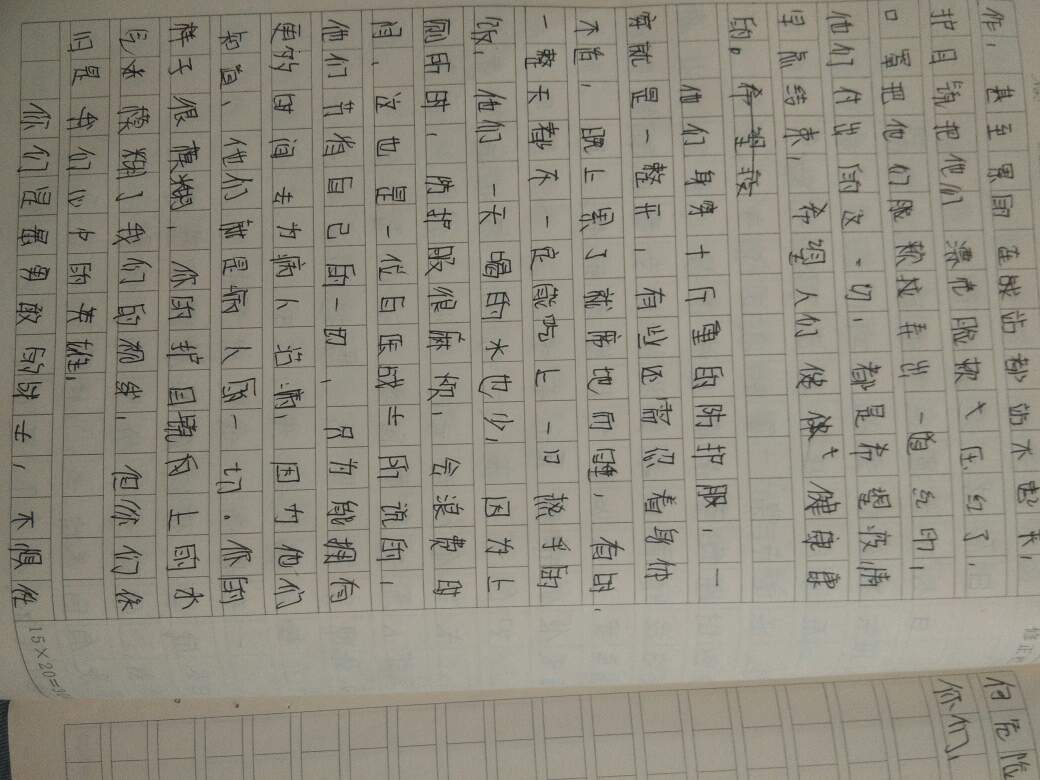 作,甚至累到在战站都站不起来,
护目镜把他们漂亮脸颊压红了,
口罩把他们脸颊拉弄出一道红印,
他们付出的这一切,都是希望疫情
早点结束,希望人们健健康康
的。希望疫
他们身穿十斤重的防护服,一
穿就是一整天,有时还需忍着身体
不适,晚上累了就席地而睡,有的
一整天都不一定能吃上一口热乎的
饭,他们一天喝的水也少,因为上
厕所时,防护服很麻烦,会浪费时
间,这也是一位白医战士所说的,
他们节省自己的一切,只为能拥有
更多的时间去为病人治病,因为他们
知道,他们就是病人的一切。你的
样子很模糊,你的护目镜上的水
气模糊了我们的视线,但你们依
旧是我们心中的英雄,
你们是最勇敢的战士,不惧任
15×20=30
何危险
你们,